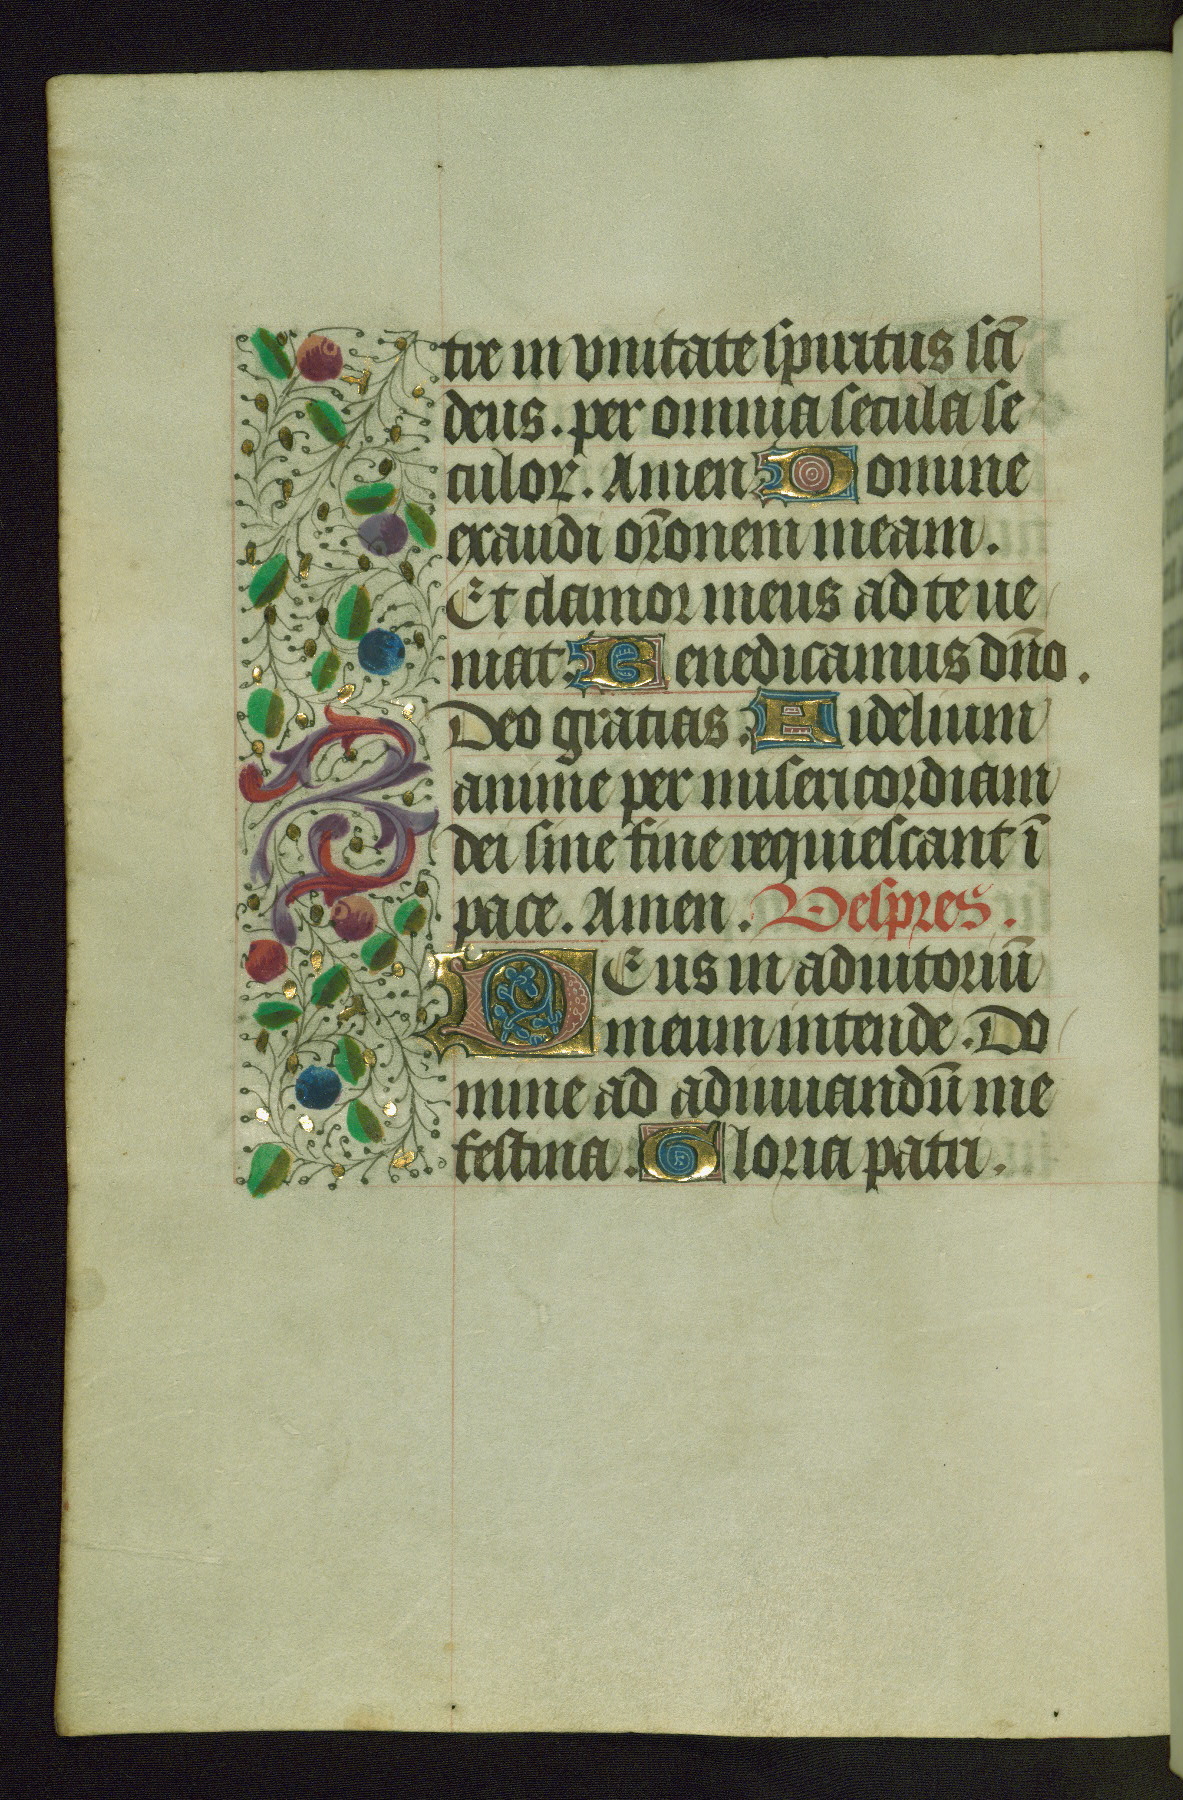 tre in vnitate spiritus sc̄i
deus. per omnia secula se
culor. Amen Domine
exaudi or̄onem meam.
Et clamor meus ad te ue
niat. Benedicamus dn̄o.
Deo gratias. Fidelium
anime per misericordiam
dei sine fine requiescant ī
pace. Amen. Vespres.
DEus in adiutoriū
meum intende. Do
mine ad adiuuandū me
festina. Gloria patri.